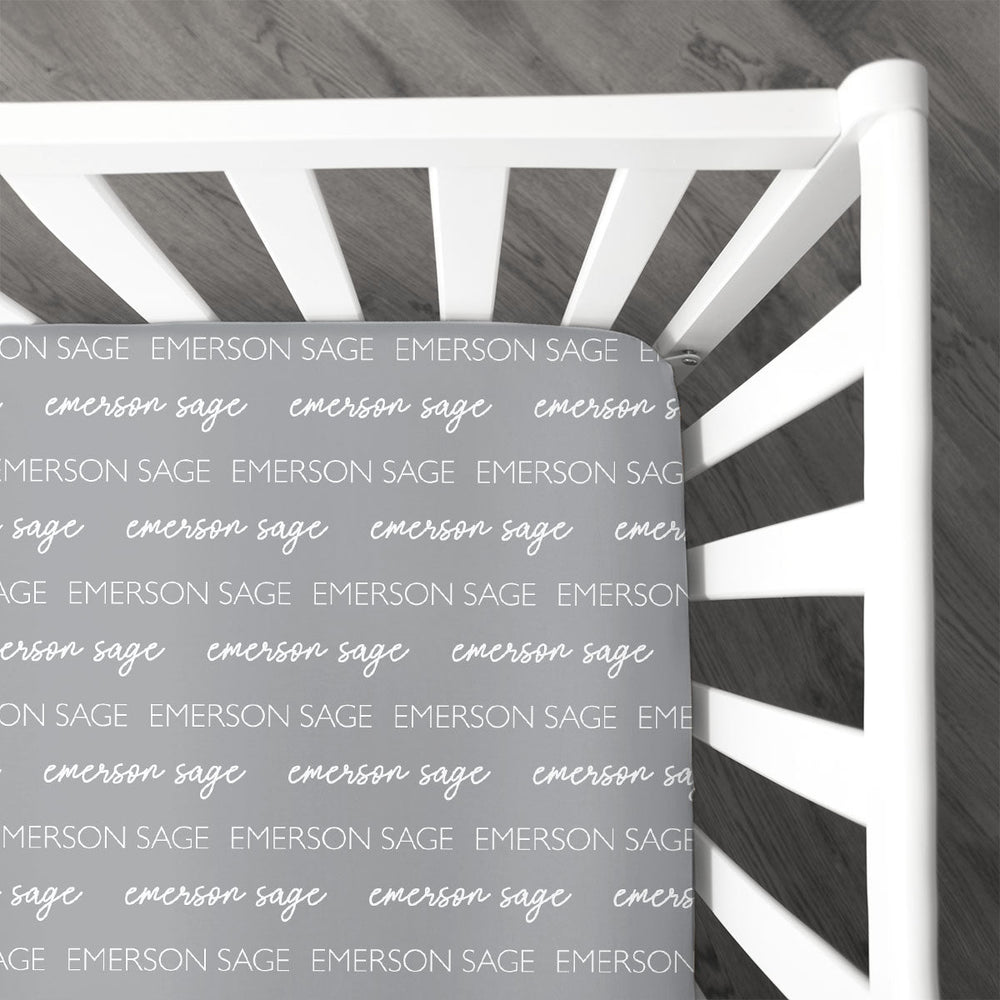 ON SAGE EMERSON SAGE EMERSON SAGE E
emerson sage emerson sage emerson s
EMERSON SAGE EMERSON SAGE EMERSON SAG
sage emerson sage emerson sage emer
AGE EMERSON SAGE EMERSON SAGE EMERSON
erson sage emerson sage emerson sage
ON SAGE EMERSON SAGE EMERSON SAGE EME
emerson sage emerson sage emerson sa
MERSON SAGE EMERSON SAGE EMERSON SAGE
sage emerson sage emerson sage emers
AGE EMERSON SAGE EMERSON SAGE EMERSON